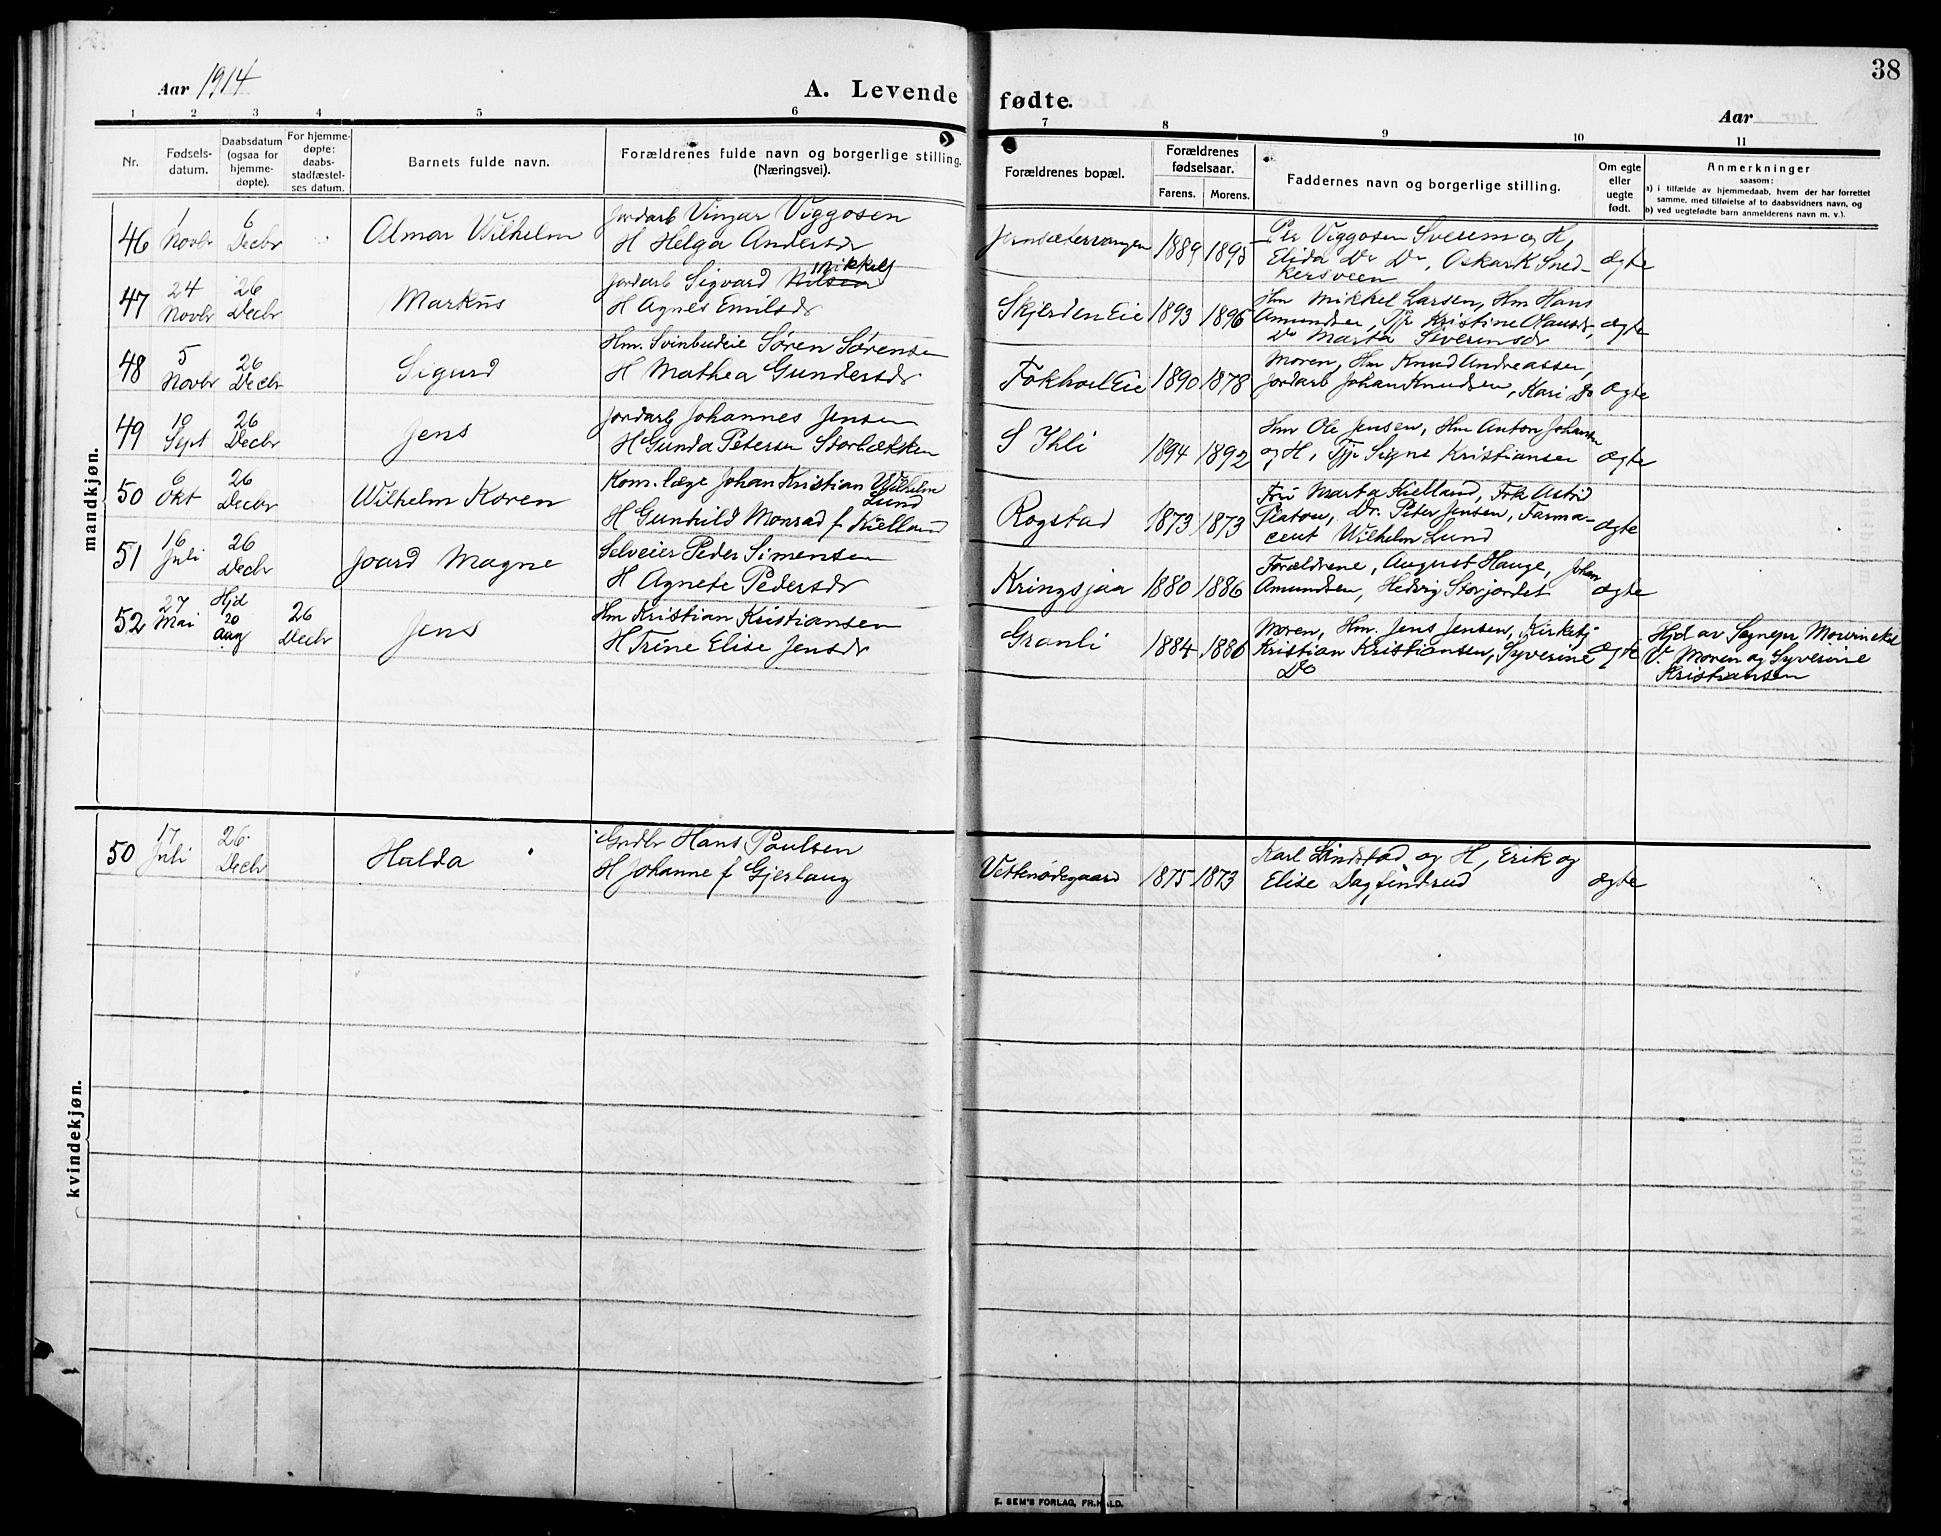 38
Aar 1914
A. Levende fødte.
Aar
1 2 3 4 5 6 7 8 9 10 11
Nr.
Fødsels-
datum.
Daabsdatum
(ogsaa for
hjemme-
døpte).
For hjemme-
døpte:
daabs-
stadfæstel-
ses datum.
Barnets fulde navn.
Forældrenes fulde navn og borgerlige stilling.
(Næringsvei).
Forældrenes bopæl.
Forældrenes
fødselsaar.
Farens. Morens.
Faddernes navn og borgerlige stilling.
Om egte
eller
uegte
født.
Anmerkninger
saasom:
a) i tilfælde av hjemmedaab, hvem der har forrettet
samme, med tilføielse af to daabsvidners navn, og
b) ved uegtefødte barn anmelderens navn m. v.).
mandkjøn.
46
1 Novbr
6 Decbr
Almar Wilhelm
Jordarb Vimar Viggosen
H Helga Andersdr
1889 1895
Per Viggosen Sveren og H,
Elida Do Do, Oskar K Sned-
kersveen
ægte
47
24 Novbr
26 Decbr
Markus
Mikkels
Jordarb Sigvard Nilsen
H Agnes Emilsdr
Skjerden Eie
1893 1896
Hm Mikkel Larsen, Hm Hans
Amundsen, Tjp Kristine Olausdr,
Do Marta Severinsdr
ægte
48
5 Novbr
26 Decbr
Sigurd
Hm. Svinbueie Søren Sørensen
H Mathea Gundersdr
Fokhol Eie
1890 1878
Moren, Hm Knud Andreassen,
Jordarb Johan Knudsen, Kari Do
ægte
49
19 Sept
26 Decbr
Jens
Jordarb Johannes Jensen
H Gunda Petersen Storbækken
S Ihli
1894 1892
Hm Ole Jensen, Hm Anton Johansen
og H, Tjp Signe Kristiansen
ægte
50
6 Okt
26 Decbr
Wilhelm Koren
Kom. læge Johan Kristian Wilhelm
Lund
H Gunhild Monrad f Kielland
Rogstad
1873 1873
Fru Marta Kielland, Frk Astrid
Platou, Dr. Peter Jensen, Farma-
ceut Wilhelm Lund
ægte
51
16 Juli
26 Decbr
Joard Magne
Selveier Peder Simensen
H Agnete Pedersdr
Kringsjaa
1880 1886
Forældrene, August Hauge, Johan
Amundsen, Hedvig Storjordet
ægte
52
27 Mai
Hjd
20 Aug
26 Decbr
Jens
Hm Kristian Kristiansen
H Trine Elise Jensdr
Granli
1884 1886
Moren, Hm. Jens Jensen, Kirketj.
Kristian Kristiansen, Syverine
Do
ægte
Hjd av Sognepr Morvinckel
V. Moren og Syverine
Kristiansen
kvindekjøn.
50
17 Juli
26 Decbr
Halda
Grdbr Hans Paulsen
H Johanne f Gjerlaug
Vestenødegaard
1875 1873
Karl Lindstad og H, Erik og
Elise Dagfindrud
ægte
E. SEM'S FORLAG, FR.HALD.